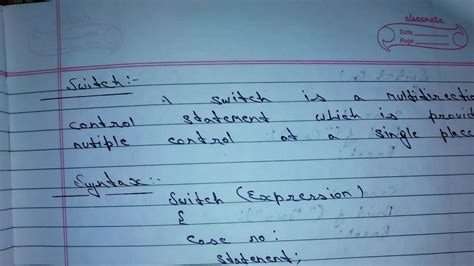 classmate
Date
Page
Switch:-
A switch is a multidirectio
control statement which is provid
nutiple control at a single place
Syntax:-
Switch (Expression)
{
case no:
statement;